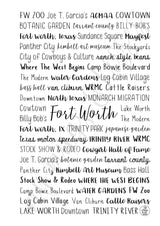 FW ZOO Joe T. Garcia's ACMAA COWTOWN
BOTANIC GARDEN tarrant county BILLY BOBS
fort worth, texas Sundance Square Mayfest
Panther City kimbell art museum The Stockyards
City of Cowboys & Culture nanck style beans
Where The West Begins Camp Bowie Boulevard
The Modern water Gardens Log Cabin Village
bass hall van cliburn WRMC Cattle Raisers
Downtown North texas MONARCH MIGRATION
Cowtown Fort Worth Lake Worth
Billy Bobs The Modern
fort worth, tx TRINITY PARK japanese garden
texas motor speedway TRINITY RIVER WRMC
STOCK SHOW & RODEO Cowgirl Hall of Fame
Joe T. Garcia's botanic garden tarrant county
Panther City Kimbell Art Museum Bass Hall
Stock Show & Rodeo WHERE THE WEST BEGINS
Camp Bowie Boulevard WATER GARDENS FW Zoo
Log Cabin Village Van Cliburn Cattle Raisers
LAKE WORTH Downtown TRINITY RIVER